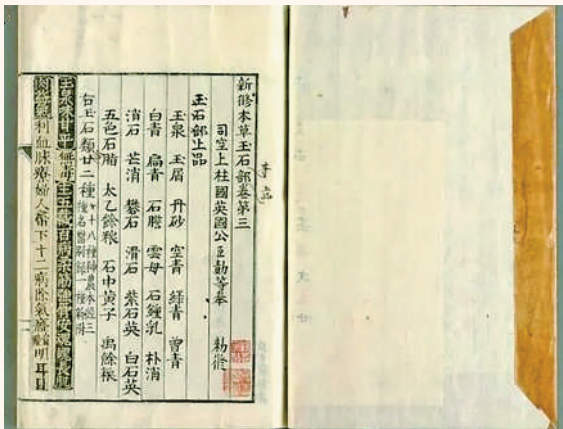 新修本草玉石部卷第三
司空上柱國英國公臣勣等奉 勑修
玉石部上品
玉泉 玉屑 丹砂 空青 綠青 曾青
白青 扁青 石膽 雲母 石鍾乳 朴消
消石 芒消 礬石 滑石 紫石英 白石英
五色石脂 太乙餘粮 石中黃子 禹餘粮
右玉石類廿二種
十八種神農本經三
種名醫別錄一種新附
玉泉味甘平無毒主五藏百病柔筋強骨安魂魄長肌
肉益氣利血脉療婦人帶下十二病除氣癃明耳目